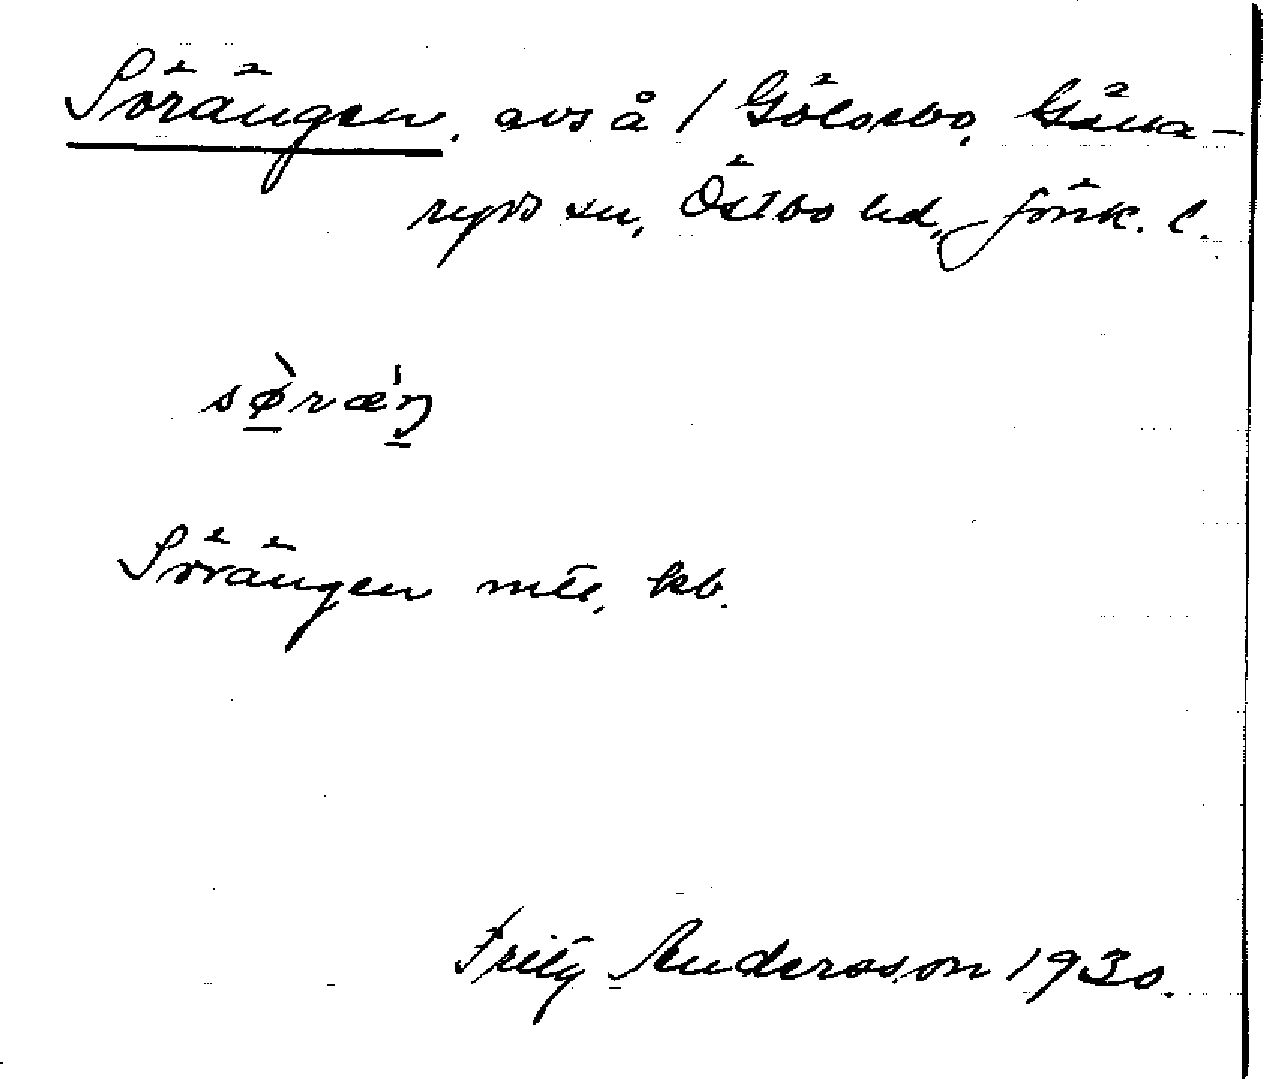 Sörängen, avs å / Gölsbo, Gåna-
ryds sn, Östbo hd, Jönk. l.
sø̀ræ'ŋ
Sörängen mtl, kb.
Frity Andersson 1930.